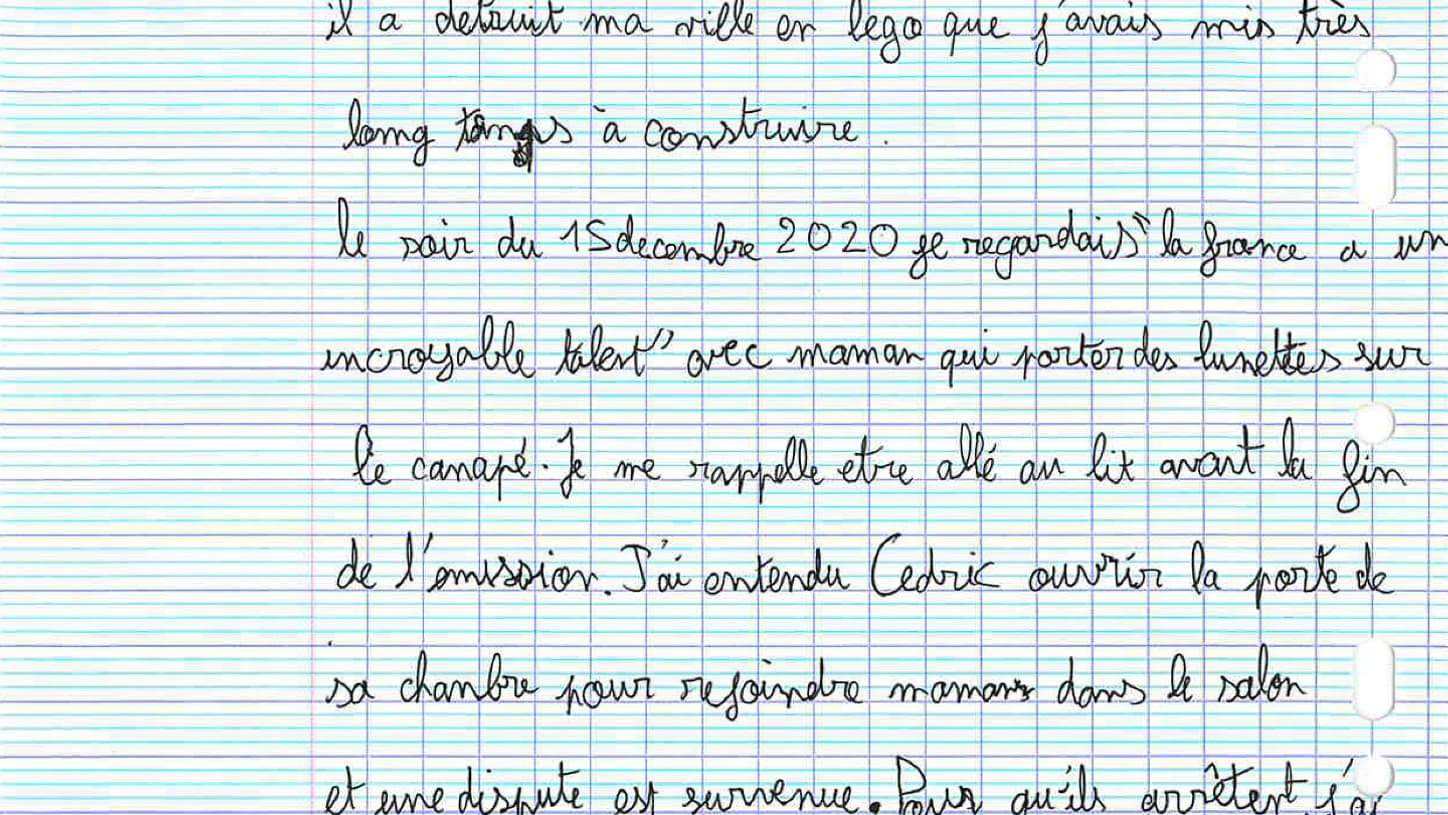 il a detruit ma ville en lego que j'avais mis très
long temps à construire.
le soir du 15 decembre 2020 je regardais "la france a un
incroyable talent" avec maman qui porter des lunettes sur
le canapé. Je me rappelle etre allé au lit avant la fin
de l'émission. J'ai entendu Cedric ouvrir la porte de
sa chanbre pour rejoindre maman dans le salon
et une dispute est survenue. Pour qu'ils arrêtent j'ai